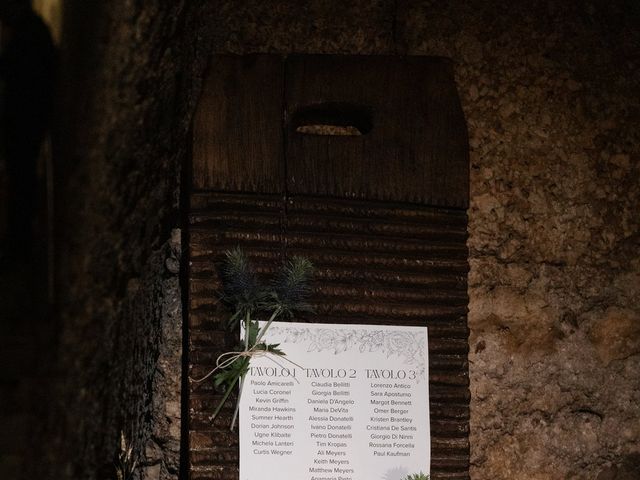 TAVOLO 1
Paolo Amicarelli
Lucia Coronel
Kevin Griffin
Miranda Hawkins
Sumner Hearth
Dorian Johnson
Ugne Klibaite
Michela Lanteri
Curtis Wegner
TAVOLO 2
Claudia Bellitti
Giorgia Bellitti
Daniela D'Angelo
Maria DeVita
Alessia Donatelli
Ivano Donatelli
Pietro Donatelli
Tim Kropas
Ali Meyers
Keith Meyers
Matthew Meyers
Anamaria Pietri
TAVOLO 3
Lorenzo Antico
Sara Aposturno
Margot Bennett
Omer Berger
Kristen Brantley
Cristiana De Santis
Giorgio Di Ninni
Rossana Forcella
Paul Kaufman